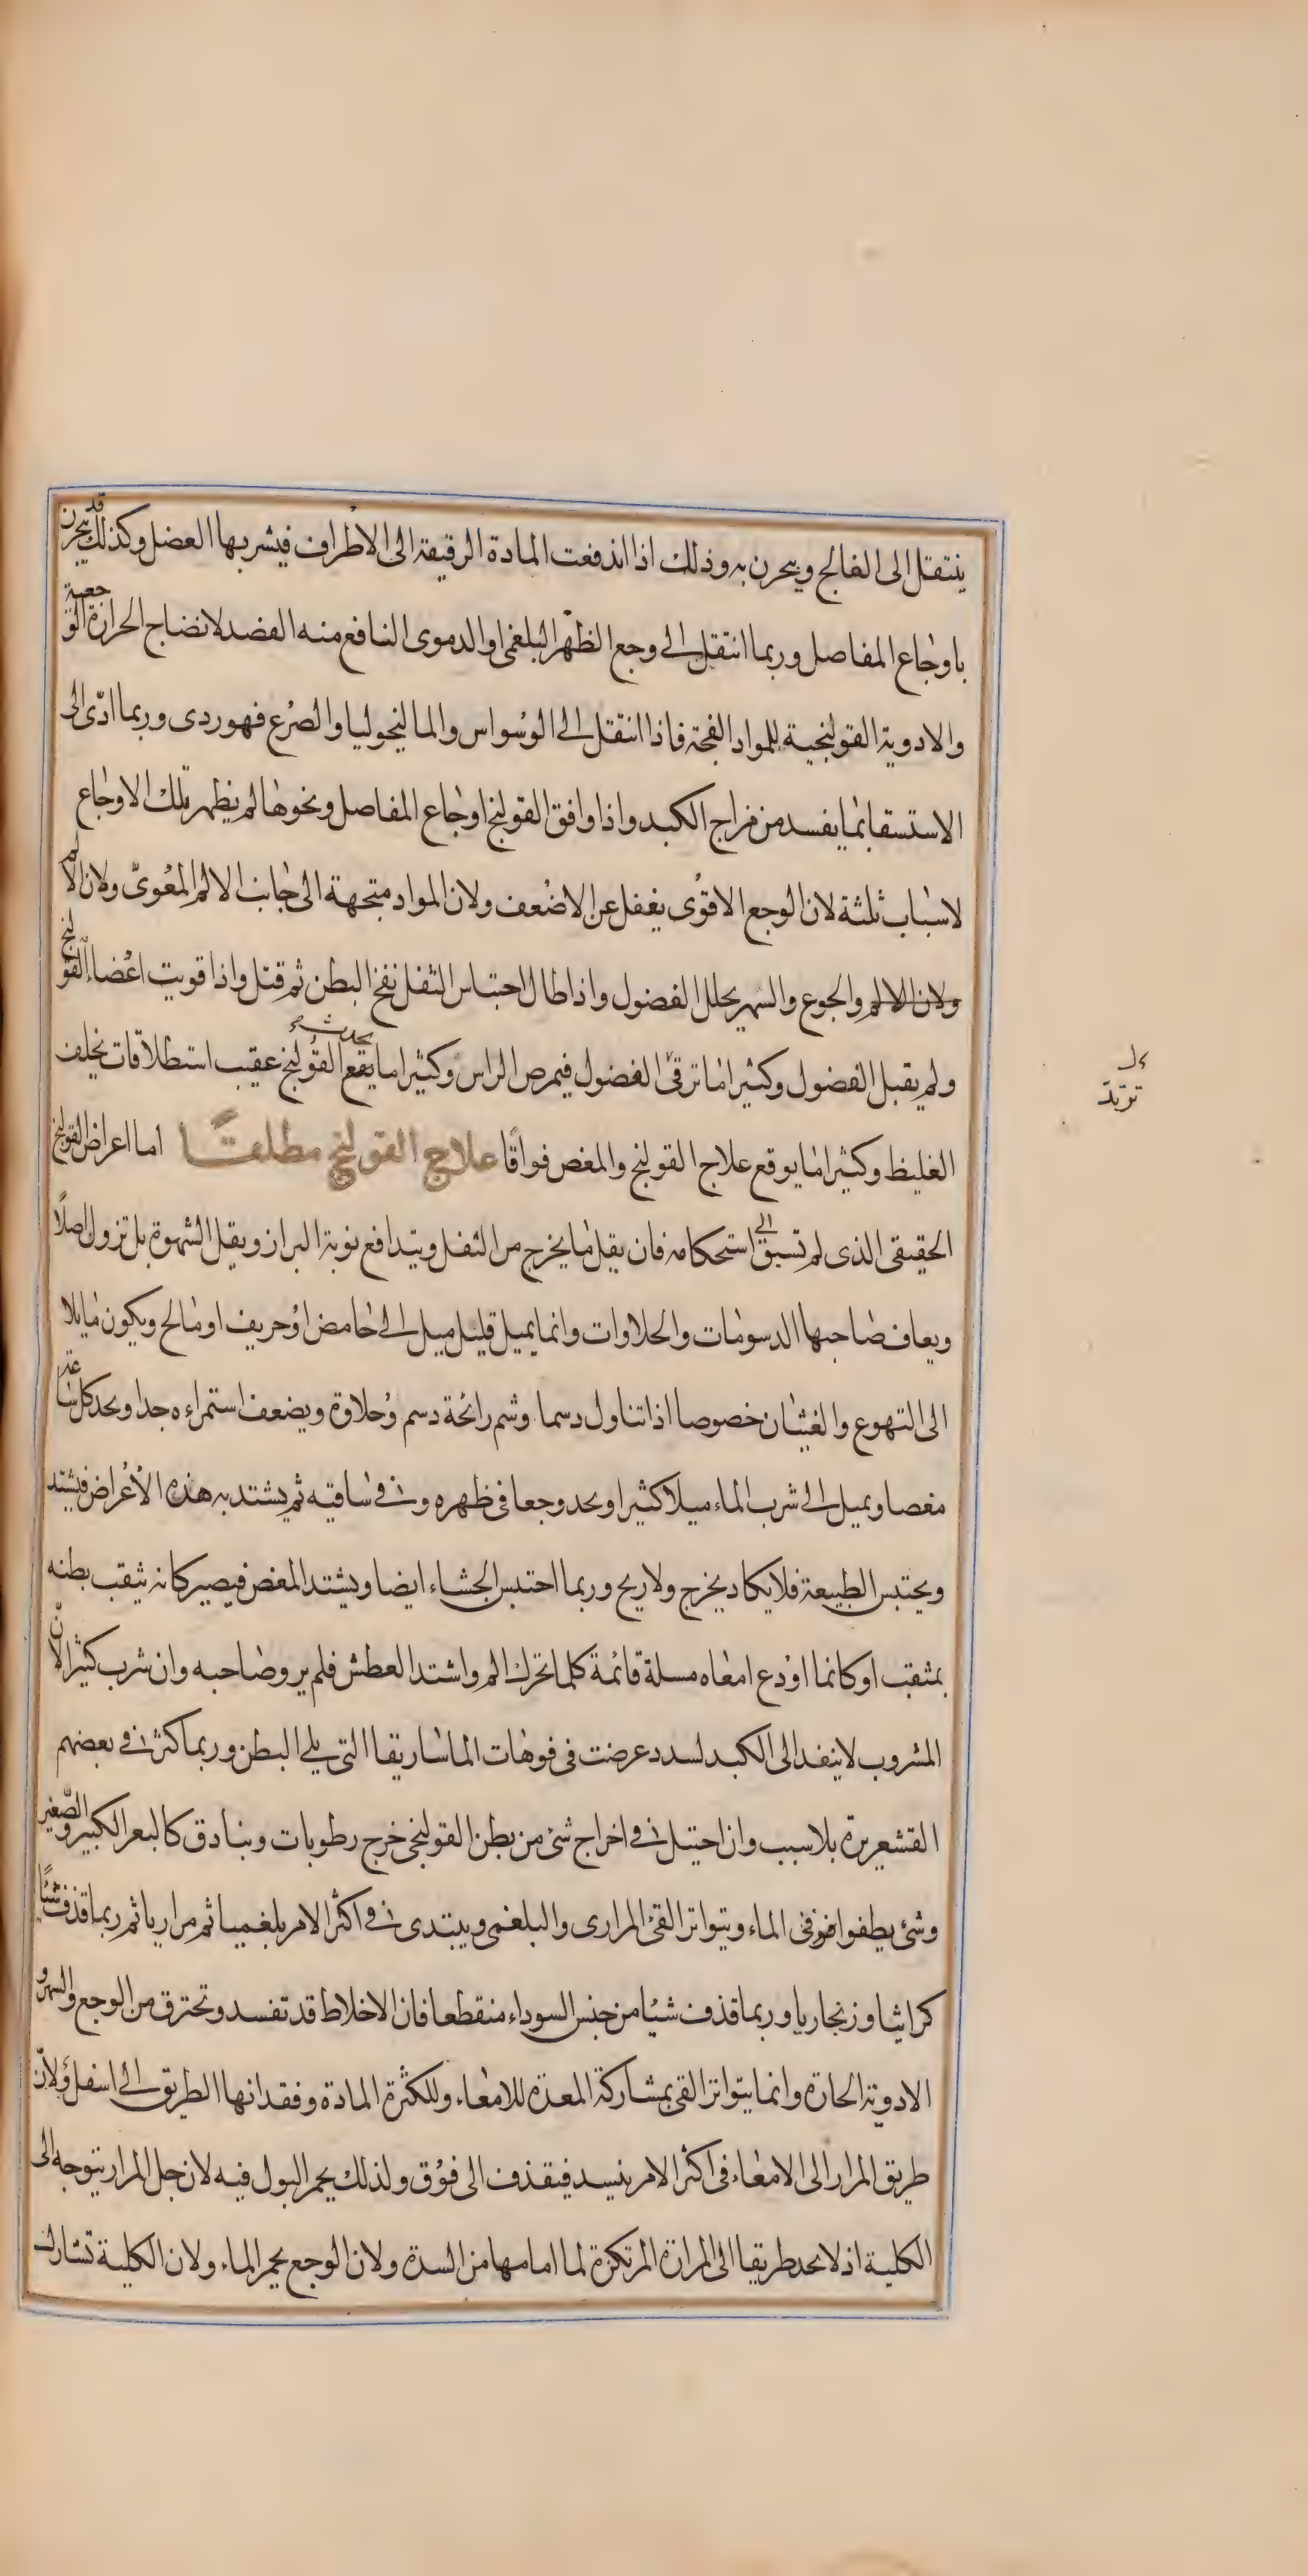 ينتقل الى الفالج ويبحرن به وذلك اذا اندفعت المادة الرقيقة الى الاطراف فيشربها العضل وكذلك قد يبحرن
باوجاع المفاصل وربما انتقل الى وجع الظهر البلغمى او الدموى النافع منه الفصد لانضاج الحرارة الوجعية
والادوية القولنجية للمواد الفجة فاذا انتقل الى الوسواس والماليخوليا والصرع فهو ردى وربما ادّى الى
الاستسقا بما يفسد من مزاج الكبد واذا وافق القولنج اوجاع المفاصل ونحوها لم يظهر تلك الاوجاع
لاسباب ثلثة لان الوجع الاقوى يغفل عن الاضعف ولان المواد متجهة الى جانب الالم المعوىّ ولان الالم
ولان الالم والجوع والسهر يحلل الفضول واذا طال احتباس الثفل نفخ البطن ثم قتل واذا قويت اعضاء القولنج
ولم يقبل الفضول وكثيرا ما ترقى الفضول فيمرض الراس وكثيرا ما يقع يحدث القولنج عقيب استطلاقات يخلف
الغليظ وكثيرا ما يوقع علاج القولنج والمغص فواقا علاج القولنج مطلقًا اما اعراض القولنج
الحقيقى الذى لم تسبق الى استحكامه فان يقل ما يخرج من الثفل ويتدافع نوبة البراز ويقل الشهوة بل تزول اصلًا
ويعاف صاحبها الدسومات والحلاوات وانما يميل قليل ميل الى حامض او حريف او مالح ويكون مايلا
الى التهوع والغثيان خصوصا اذا تناول دسما وشم رائحة دسم وحلاوة ويضعف استمراءه جدا ويحد كل ساعة
مغصا ويميل الى شرب الماء ميلا كثيرا ويحد وجعا فى ظهره وفى ساقيه ثم يشتد به هذه الاعراض فيشتد
ويحتبس الطبيعة فلا يكاد يخرج ولا ريح وربما احتبس الجشاء ايضا ويشتد المغص فيصير كانه يثقب بطنه
بمثقب او كانما اودع امعاه مسلة قائمة كلما تحرك الم واشتد العطش فلم يرو صاحبه وان شرب كثيرا لانّ
المشروب لا ينفد الى الكبد لسدد عرضت فى فوهات الماساريقا التى يلى البطن وربما كثر فى بعضهم
القشعريرة بلا سبب وان احتيل فى اخراج شئ من بطن القولنجى خرج رطوبات وبنادق كالبعر الكبير والصّغير
وشئ يطفوا فى الماء ويتواتر القئ المرارى والبلغمى ويبتدى فى اكثر الامر بلغميا ثم مراريا ثم ربما قذف شئًا
كراثيا وزنجاريا وربما قذف شيا من جنس السوداء منقطعا فان الاخلاط قد تفسد وتحترق من الوجع والسهر و
الادوية الحارة وانما يتواتر القى بمشاركة المعدة للامعاء وللكثرة المادة وفقدانها الطريق الى اسفل ولانّ
طريق المرار الى الامعاء فى اكثر الامر ينسد فيقذف الى فوق ولذلك يحمر البول فيه لان جل المرار يتوجه الى
الكلية اذ لا يحد طريقا الى المرارة المرتكزة لما امامها من السدة ولان الوجع يحمر الماء ولان الكلية تشارك